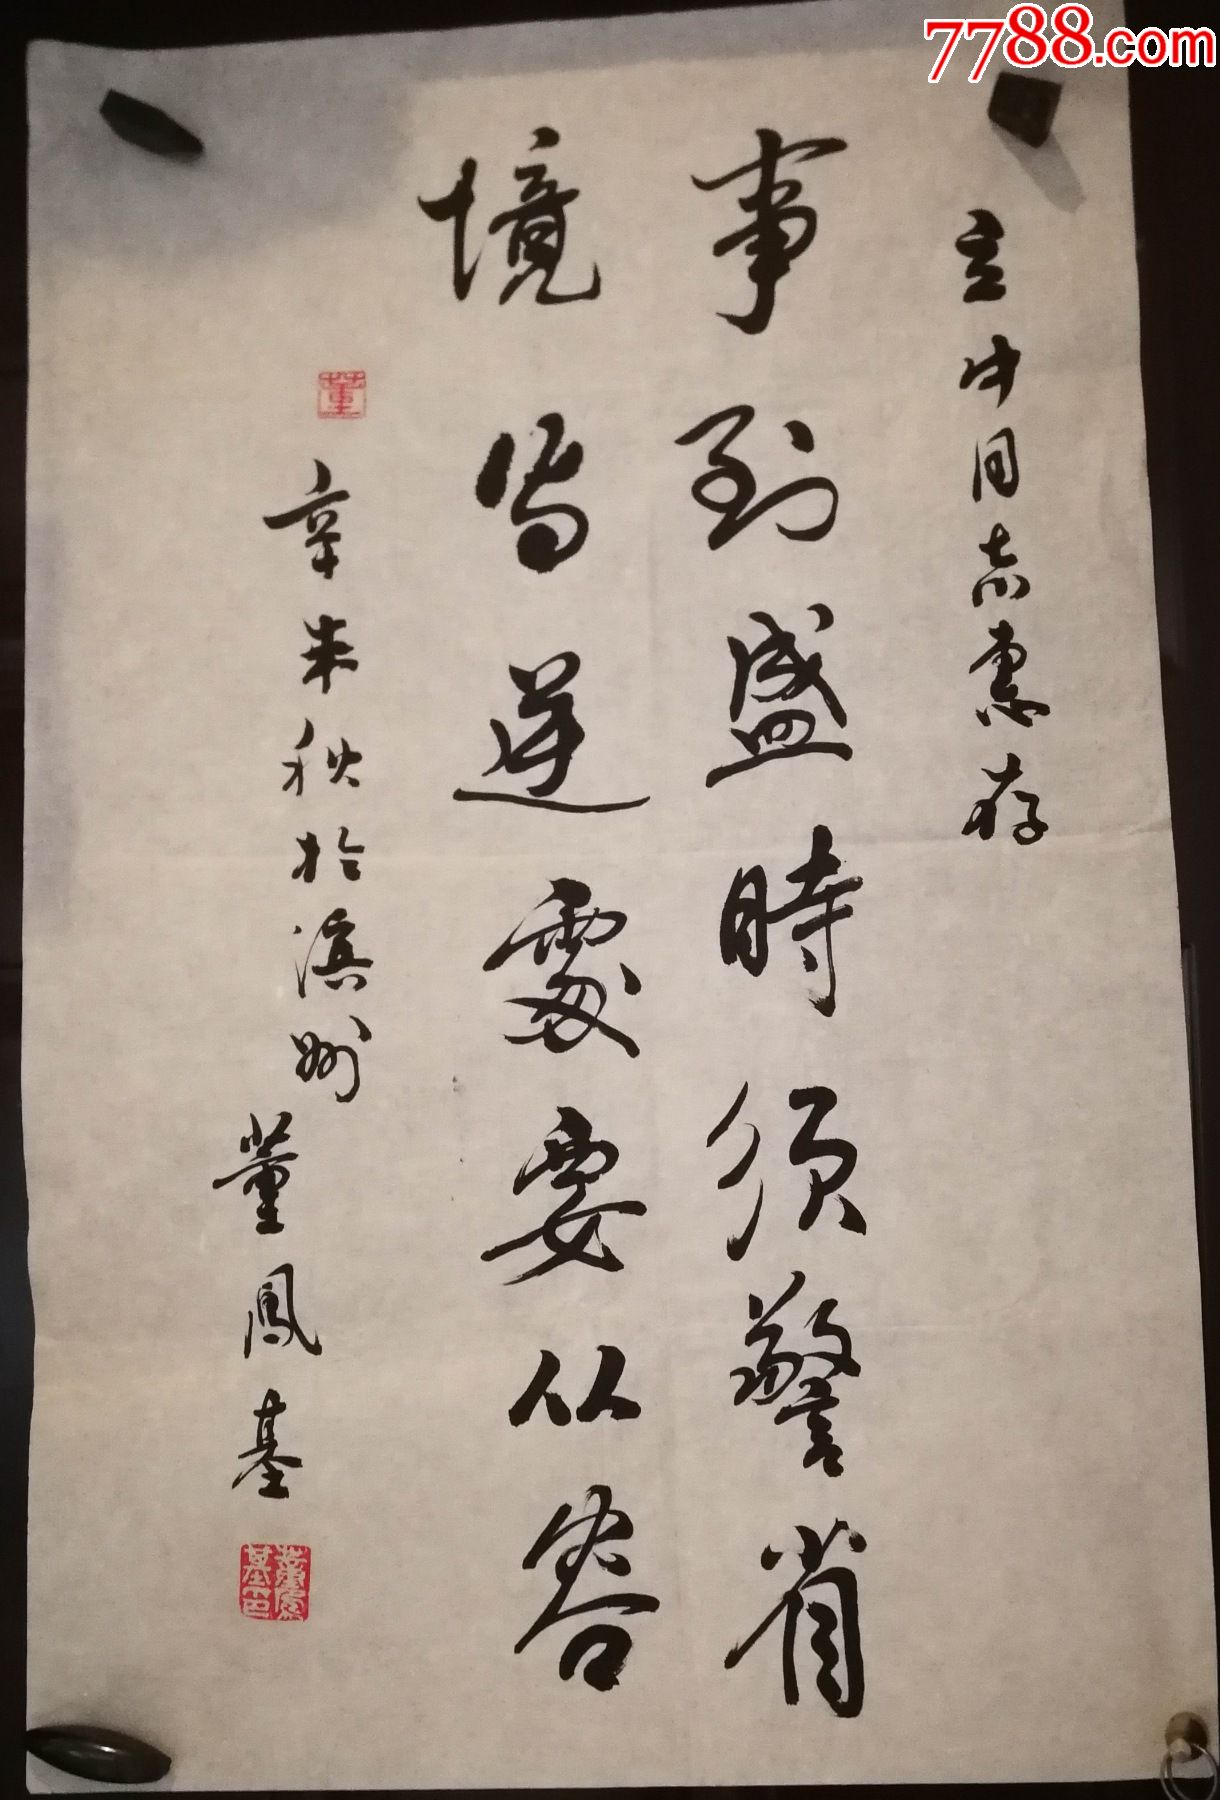 7788.com
立中同志惠存
事到盛時须警省
境當逆處要从容
辛未秋於滨州
董鳳基
董